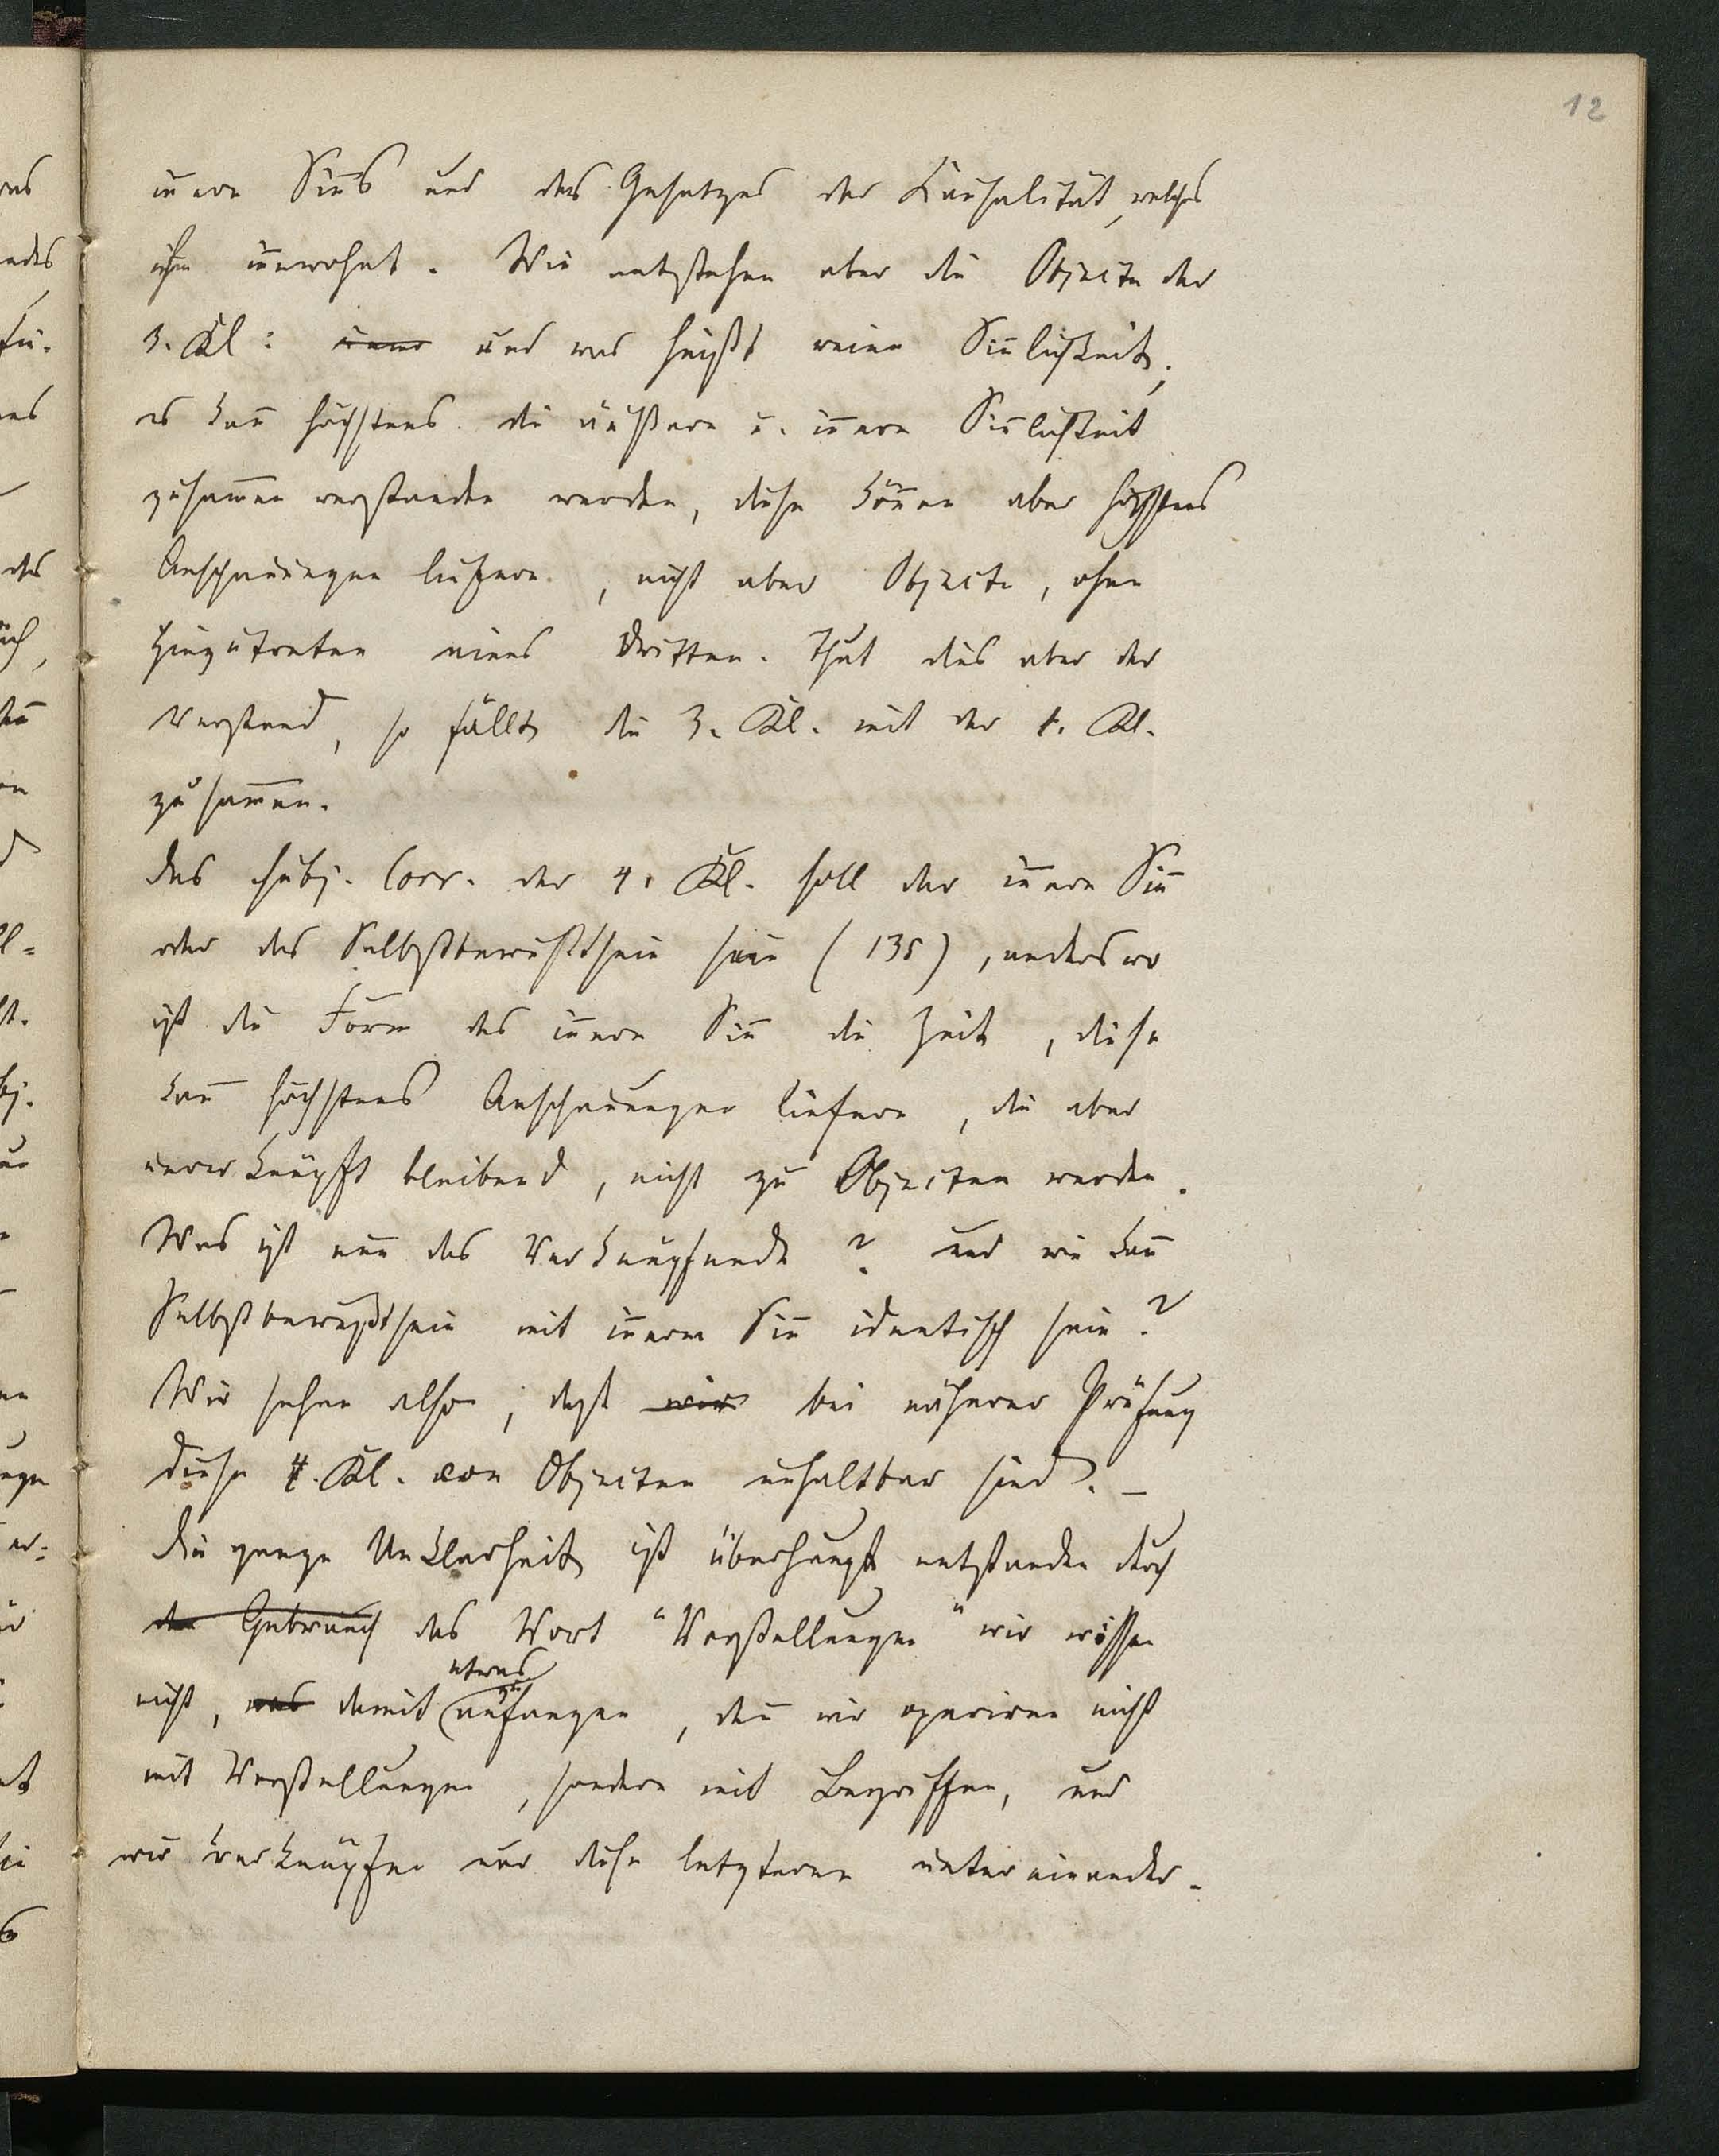 12
innern Sinns und des Gesetzes der Kausalität, welches
ihm innwohnt. Wie entstehen aber die Objecte der
3. Kl: und was heißt reine Sinnlichkeit,
es kann höchstens die äußere u. innere Sinnlichkeit
zusammen verstanden werden, diese können aber höchstens
Anschauungen liefern, nicht aber Objecte, ohne
Hinzutreten eines Dritten. Thut dies aber der
Verstand, so fällt die 3. Kl. mit der 1. Kl.
zusammen.
Das subj. Corr. der 4. Kl. soll der innere Sinn
oder das Selbstbewußtsein sein (135), anderswo
ist die Form des innern Sinn die Zeit, diese
kann höchstens Anschauungen liefern, die aber
unverknüpft bleibend, nicht zu Objecten werden.
Was ist nun das Verknüpfende? und wie kann
Selbstbewußtsein mit innerm Sinn identisch sein?
Wir sehen also, daß wir bei näherer Prüfung
diese 4. Kl. von Objecten unhaltbar sind. —
Die ganze Unklarheit ist überhaupt entstanden durch
den Gebrauch das Wort "Vorstellungen" wir wissen
nicht, was damit etwas anzufangen, denn wir operiren nicht
mit Vorstellungen, sondern mit Begriffen, und
wir verknüpfen nur diese letzteren untereinander.